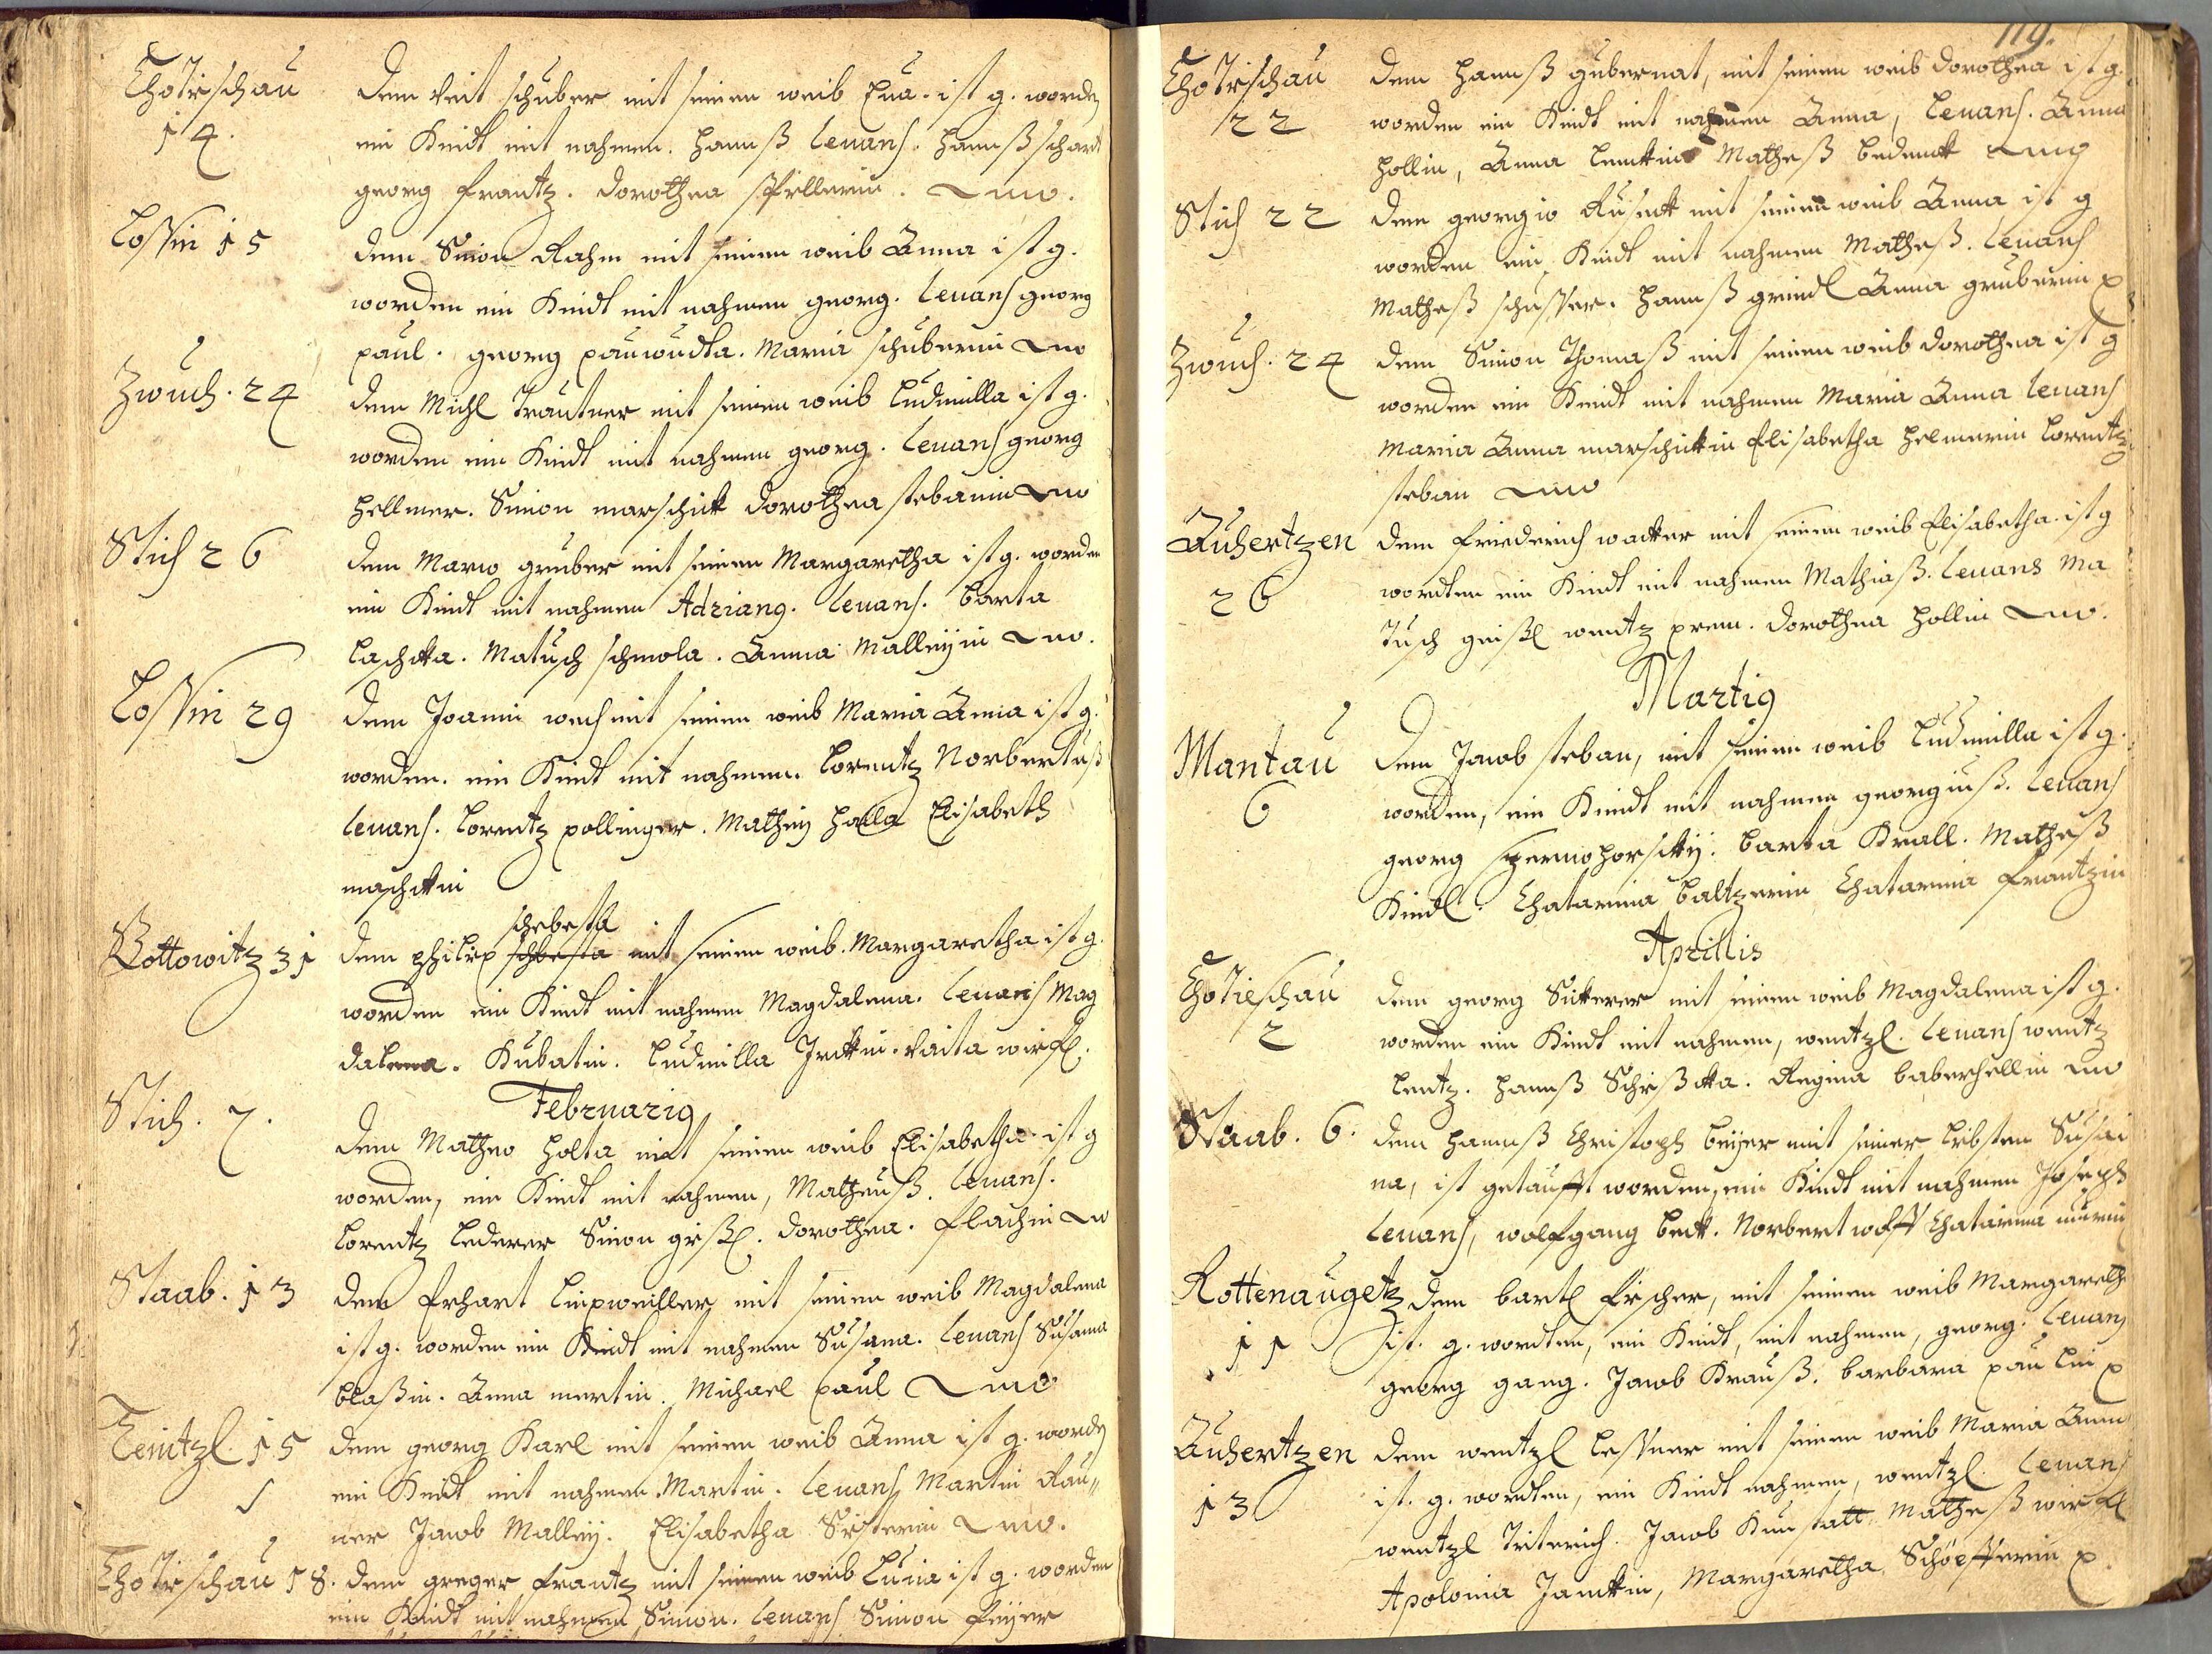 Chotieschau Dem Veit schuber mit seinen weib Eua. ist g. worden
14. ein Kindt mit nahmen. Hannß levans. Hannß schart
georg frantz. Dorothea
Lossin 15 dem Simon Rahm mit seinen weib Anna ist g.
worden ein Kindt mit nahmen georg. levans georg
paul. georg pauwudka. Maria schuberin
Zwuch. 24 dem Michl Trautner mit seinen weib Ludmilla ist g.
worden ein Kindt mit nahmen georg. levans georg
Hellmer. Simon marschick Dorothea stebanin
Stich 26 dem Marco gruber mit seinen Margaretha ist g. worden
ein Kindt mit nahmen Adriang. levans. Barta
Laschka. Matusch schmola. Anna Malleyin
Lossin 29 dem Joanni wech mit seinen weib Maria Anna ist g.
worden. ein Kindt mit nahmen. Lorentz Norbertuß
levans. Lorentz pollinger. Mathey Halla Elisabeth
maschkin
schebesta
Gottowitz 31 dem philipp mit seinen weib. Margaretha ist g.
worden ein Kindt mit nahmen Magdalena. levans Mag
dalena. Kubatin. Ludmilla Veita
Februarig
Stich. 7. dem Matheo Holta mit seinen weib Elisabetha ist g
worden, ein Kindt mit nahmen, Matheuß. levans.
Lorentz Lederer Simon Dorothea. flachin
Staab. 13 dem Erhart Linxweiller mit seinen weib Magdalena
ist g. worden ein Kindt mit nahmen Susana. levans Susana
Blaßin. Anna mertin. Michael paul
Teintzl. 15 dem georg Karl mit seinen weib Anna ist g. worden
ein Kindt mit nahmen Martin. levans Martin Rau„
ner Jacob Malley. Elisabetha
Chotieschau 18. dem greger frantz mit seinen weib Lucia ist g. worden
ein Kindt mit nahmen Simon. levans Simon feyer
119.
Chotieschau dem Hannß gubernat, mit seinen weib Dorothea ist g.
22 worden ein Kindt mit nahmen Anna, levans. Anna
Hollin, Anna Matheß
Stich 22 dem georgio Ruseck mit seinen weib Anna ist g
worden ein Kindt mit nahmen Matheß. levans
Matheß schusser. Hannß grindl Anna gruberin
Zwuch. 24 dem Simon Thomaß mit seinen weib Dorothea ist g
worden ein Kindt mit nahmen Maria Anna levans
Maria Anna marschickin Elisabetha Helmerin Lorentz
steban
Auhertzen dem friederich wacker mit seinen weib Elisabetha. ist g
26 wordten ein Kindt mit nahmen Mathiaß. levans Ma
tusch geißl wentz prem. Dorothea Hollin
Martig
Mantau Dem Jacob steban, mit seinen weib Ludmilla ist g.
6 worden, ein Kindt mit nahmen georgiuß. levans
georg Barta Krall. Matheß
Kindl. Chatarina Baltzerin Chatarina frantzin
Aprillis
Chotieschau dem georg Sickerer mit seinen weib Magdalena ist g.
2 worden ein Kindt mit nahmen, wentzl. levans wentz
Lentz. Hannß Regina
Staab. 6. dem Hannß Christoph Beyer mit seiner liebsten Susan
na, ist getaufft worden, ein Kindt mit nahmen Joseph
levans, wolfgang Beck. Norbert wolff Chatarina
Rottenaugetz dem Bartl fischer, mit seinen weib Margaretha
11 ist. g. wordten, ein Kindt, mit nahmen, georg. levans
georg gang. Jacob Krauß. Barbara paulin
Auhertzen dem wentzl Lessner mit seinen weib Maria Anna
13 ist. g. wordten, ein Kindt nahmen, wentzl. levans
wentzl Jacob Kunstatt Matheß
Apolonia Janckin, Margaretha Schöfferin